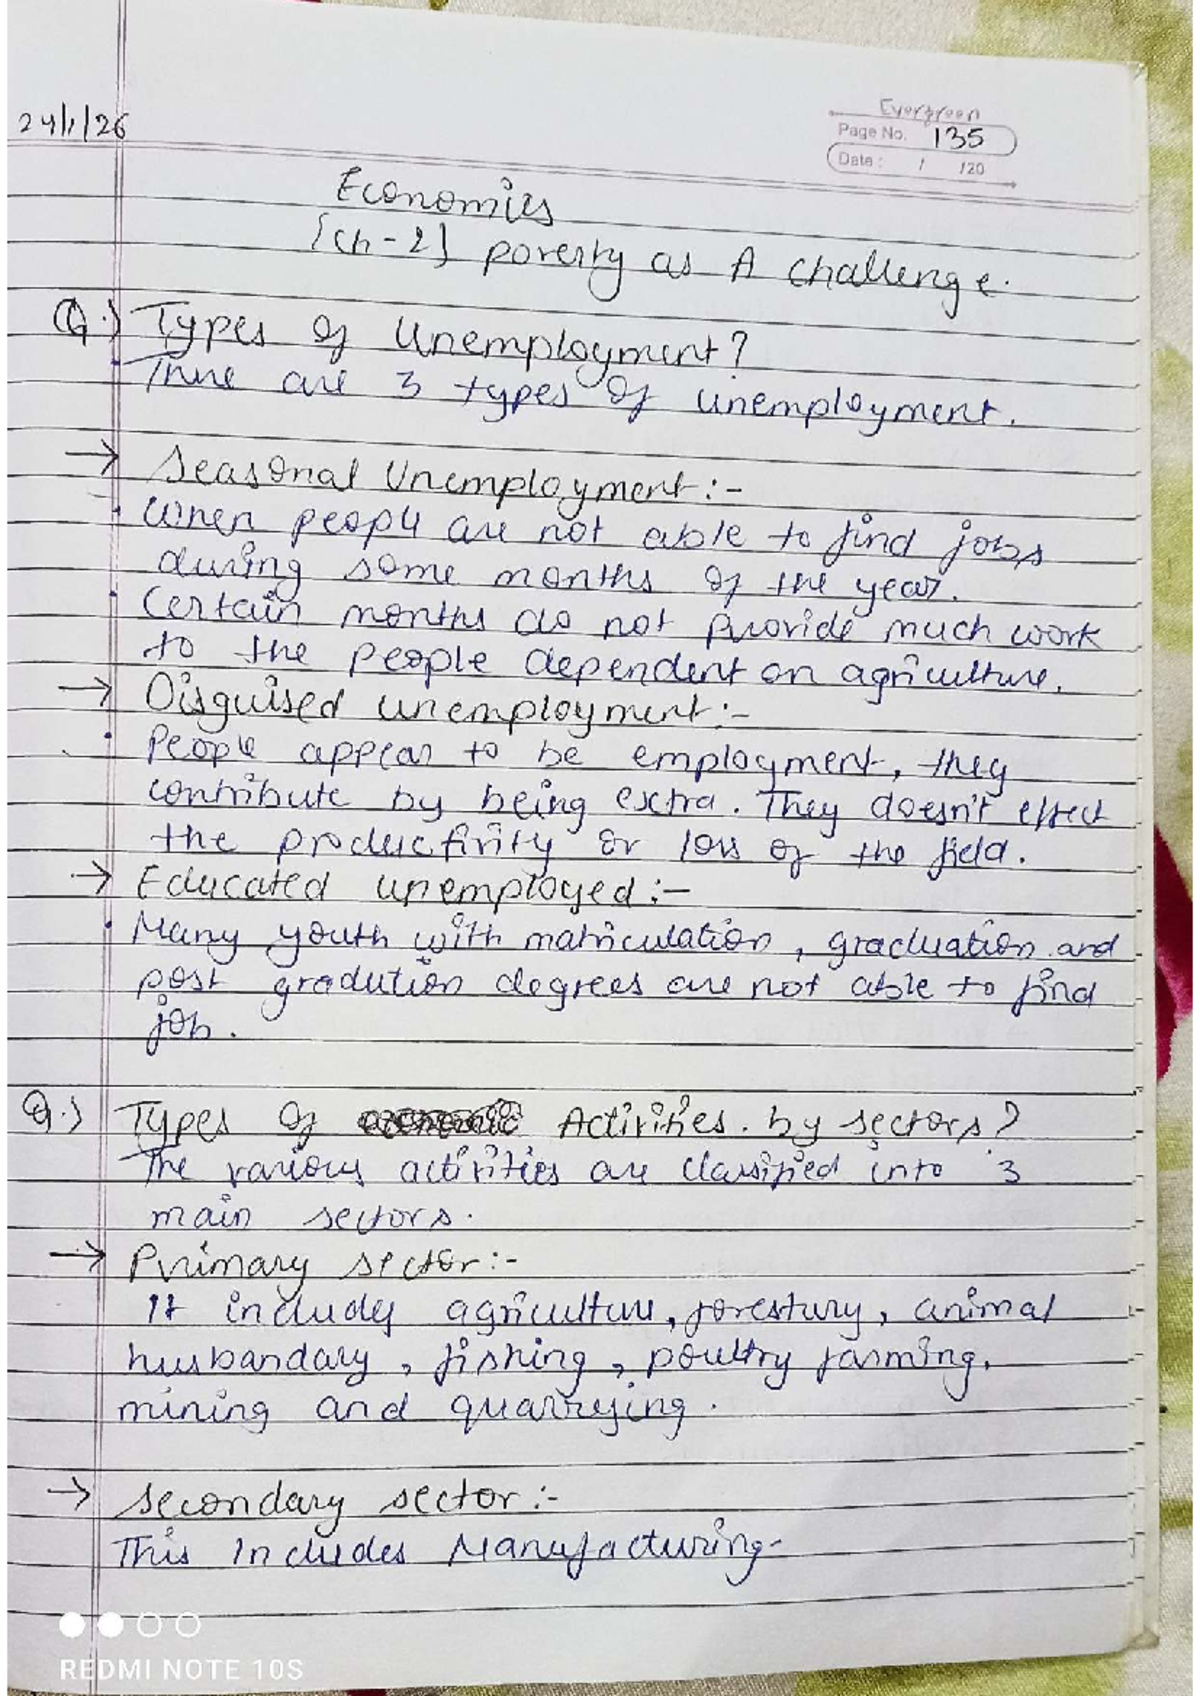 24/1/26
Evergreen
Page No. 135
Date : / /20
Economics
[Ch-2] poverty as A challenge.
Q.) Types of Unemployment?
There are 3 types of unemployment.
→ Seasonal Unemployment:-
• When people are not able to find jobs
during some months of the year.
• Certain months do not provide much work
to the people dependent on agriculture.
→ Disguised unemployment:-
• People appear to be employment, they
contribute by being extra. They doesn't effect
the productivity or loss of the field.
→ Educated unemployed:-
• Many youth with matriculation, graduation and
post gradution degrees are not able to find
job.
Q.) Types of Activities. by sectors?
The various activities are classified into 3
main sectors.
→ Primary sector:-
It includes agriculture, forestury, animal
husbandary, fishing, poultry farming,
mining and quarrying.
→ Secondary sector:-
This Includes Manufacturing.
REDMI NOTE 10S